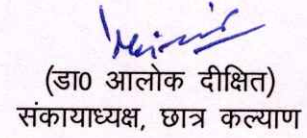 (डा0 आलोक दीक्षित)
संकायाध्यक्ष, छात्र कल्याण